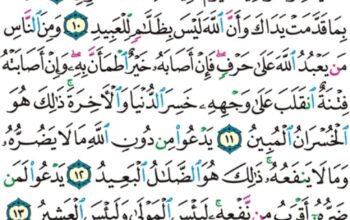 بِمَا قَدَّمَتْ يَدَاكَ وَأَنَّ ٱللَّهَ لَيْسَ بِظَلَّٰمٍ لِّلْعَبِيدِ ١٠ وَمِنَ ٱلنَّاسِ
مَن يَعْبُدُ ٱللَّهَ عَلَىٰ حَرْفٍ فَإِنْ أَصَابَهُۥ خَيْرٌ ٱطْمَأَنَّ بِهِۦ وَإِنْ أَصَابَتْهُ
فِتْنَةٌ ٱنقَلَبَ عَلَىٰ وَجْهِهِۦ خَسِرَ ٱلدُّنْيَا وَٱلْءَاخِرَةَ ذَٰلِكَ هُوَ
ٱلْخُسْرَانُ ٱلْمُبِينُ ١١ يَدْعُوا۟ مِن دُونِ ٱللَّهِ مَا لَا يَضُرُّهُۥ
وَمَا لَا يَنفَعُهُۥ ذَٰلِكَ هُوَ ٱلضَّلَٰلُ ٱلْبَعِيدُ ١٢ يَدْعُوا۟ لَمَن
ضَرُّهُۥٓ أَقْرَبُ مِن نَّفْعِهِۦ لَبِئْسَ ٱلْمَوْلَىٰ وَلَبِئْسَ ٱلْعَشِيرُ ١٣